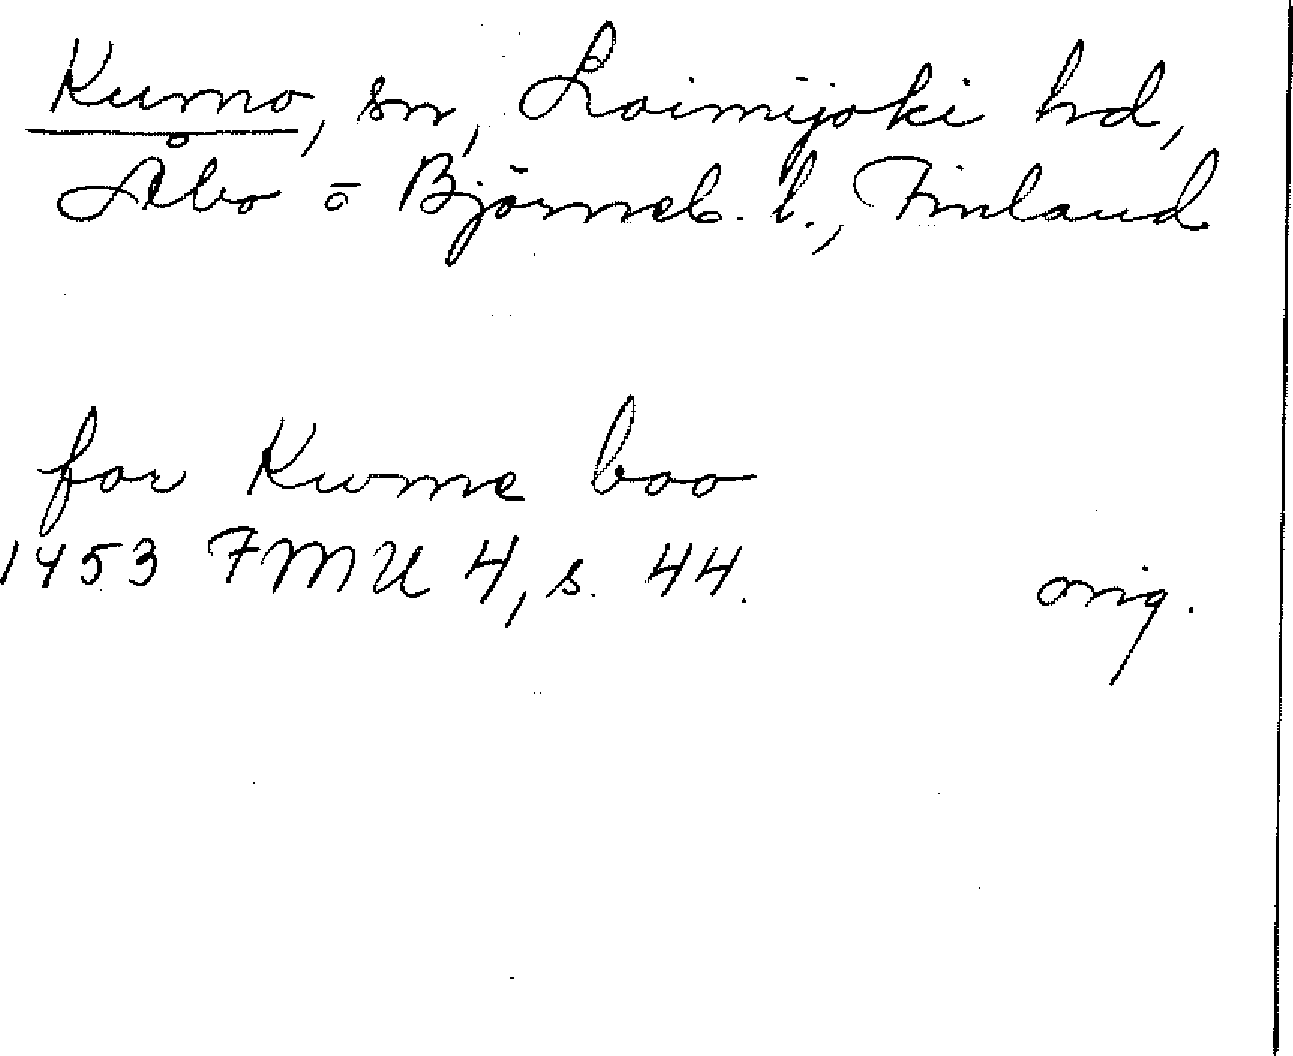 Kumo, sn, Loimijoki hd,
Åbo o Björneb. l., Finland
for Kwme boo
1453 FMU 4, s. 44.
orig.